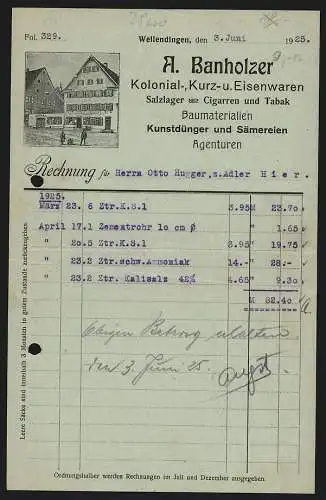 Fol. 329.
Wellendingen, den 3. Juni 1925.
A. Banholzer
Kolonial-, Kurz- u. Eisenwaren
Salzlager Cigarren und Tabak
Baumaterialien
Kunstdünger und Sämereien
Agenturen
Rechnung für Herrn Otto Hugger, z. Adler Hier.
1925.
März 23. 6 Ztr. K.S.1 3.95 M 23.70
April 17. 1 Zementrohr 10 cm β " 1.65
" 20. 5 Ztr. K.S.1 3.95 " 19.75
" 23. 2 Ztr. schw. Ammoniak 14.- " 28.-
" 23. 2 Ztr. Kalisalz 42% 4.65 " 9.30
M 82.40
Obigen Betrag erhalten
den 3. Juni 25.
Leere Säcke sind innerhalb 3 Monaten in gutem Zustande zurückzugeben.
Ordnungshalber werden Rechnungen im Juli und Dezember ausgegeben.